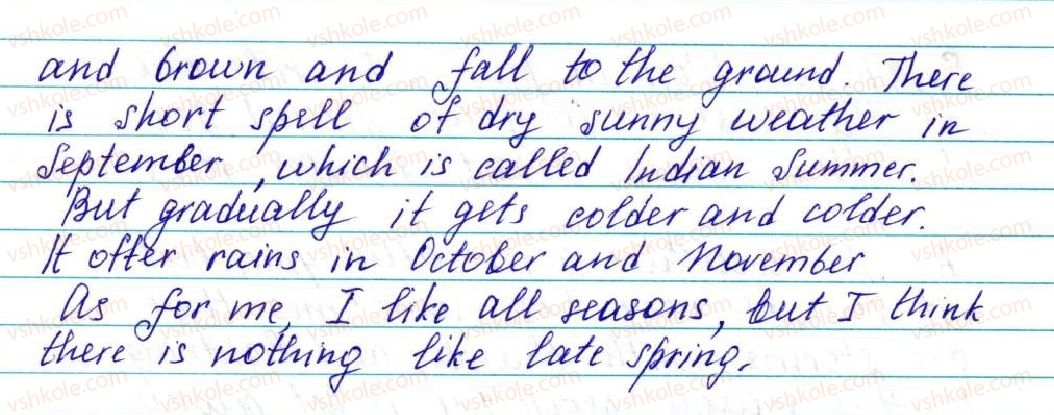 and brown and fall to the ground. There
is short spell of dry sunny weather in
September, which is called Indian Summer.
But gradually it gets colder and colder.
It ofter rains in October and November
As for me, I like all seasons, but I think
there is nothing like late spring.